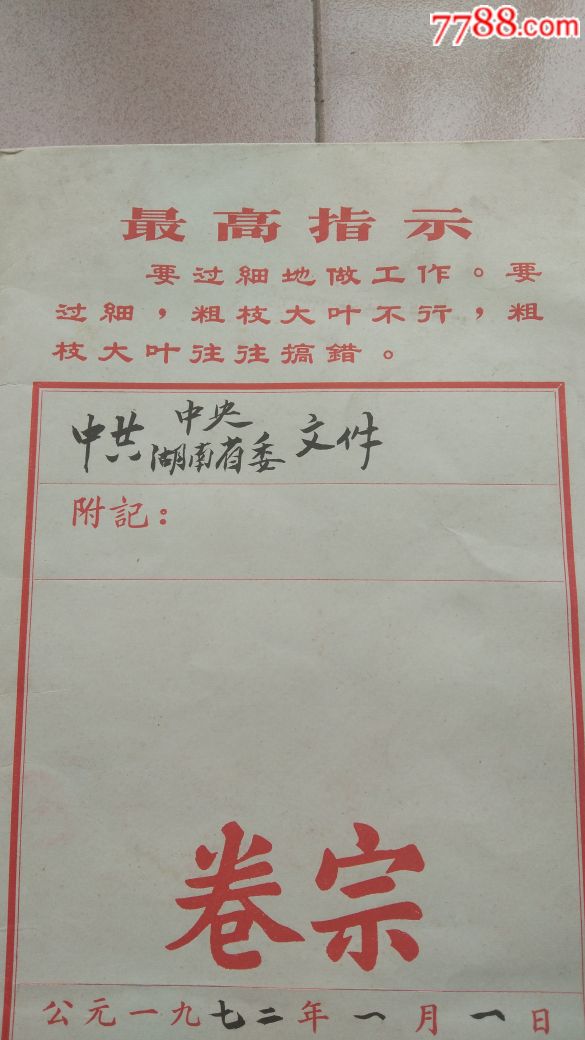 7788.com
最高指示
要过细地做工作。要
过细，粗枝大叶不行，粗
枝大叶往往搞错。
中共中央
湖南省委文件
附記：
卷宗
公元一九七二年一月一日